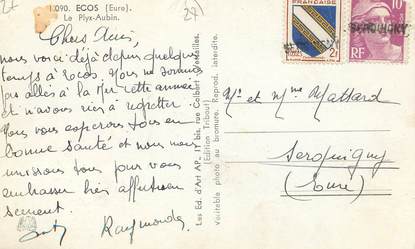 1.090. ECOS (Eure).
Le Plyx-Aubin.
Chers Amis,
nous voici déjà depuis quelque
temps à Ecos. Nous ne sommes
pas allés à la mer cette année
et n'avons rien à regretter.
Nous vous espérons tous en
bonne santé et nous nous
unissons tous pour vous
embrasser très affectueu
sement.
Raymonde
Les Ed. d'Art AP. 11 bis, rue Colbert, Versailles.
(Edition Tribout)
Véritable photo au bromure. Reprod. interdite.
FRANÇAISE
2F
10F
RF
SERQUIGNY
Mr et Mme Massard
Serquigny
(Eure)